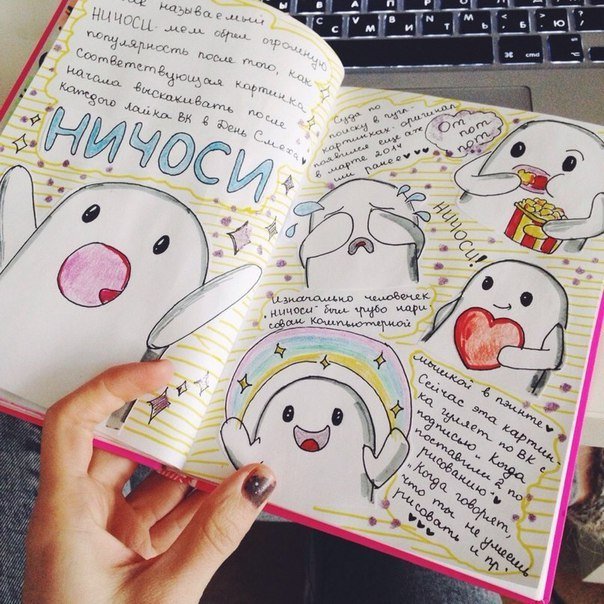 называемый
НИЧОСИ - мем обрёл огромную
популярность после того, как
соответствующая картинка
начала выскакивать после
каждого лайка ВК в День Смеха
НИЧОСИ
Судя по
поиску в гугл-
картинках, оригинал
появился ещё аж
в марте 2014
или ранее ♥♥
Om
nom
nom
НИЧОСИ!
Изначально человечек
„ничоси" был грубо нари
сован компьютерной
мышкой в пэинте ♥
Сейчас эта картин-
ка гуляет по ВК с
подписью „Когда
поставили 2 по
рисованию"
„Когда говорят,
что ты не умеешь
рисовать и пр.